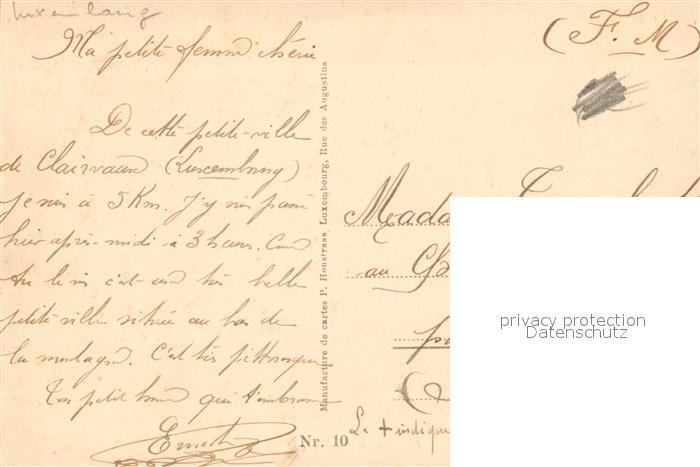 Luxembourg
(F. M)
Ma petite femme chérie
De cette petite ville
de Clairvaux (Luxembourg)
je suis à 5 Km. J'y suis passé
hier après-midi à 3 heures. Comme
tu le vois c'est une très belle
petite ville située au bas de
la montagne. C'est très pittoresque
Ton petit homme qui t'embrasse
Ernest
Manufacture de cartes P. Houstrass, Luxembourg, Rue des Augustins
Nr. 10
au
La + indique
privacy protection
Datenschutz